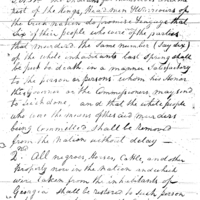 rest of the Kings, Head men & Warriors of
the Creek nation do promise & engage that
Six of their people who were of the parties
that murdered the same number (Say six)
of the white inhabitants last Spring shall
be put to death in a manner satisfactory
to the person or persons, whom his Honor
the Governor or the Commissioners, may send
to see it done, and that the white people
who were the causes of the said murders
being committed shall be removed
from the nation without delay —
2. All negroes, Horses, Cattle, and other
property now in the nation and which
were taken from the inhabitants of
Georgia shall be restored to such person